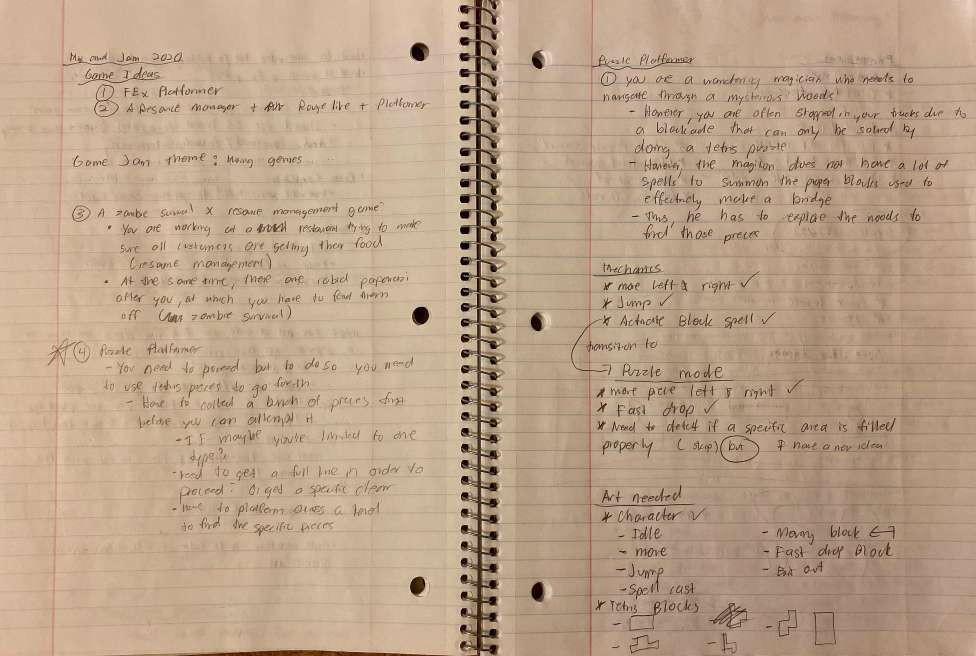 Mix and Jam 2020
Game Ideas
① FEx Platformer
② A Resource manager + Rouge like + Platformer
Game Jam theme:
③ A zombie survial X resource management game:
• You are working at a restaurant trying to make
sure all customers are getting their food
(resource management)
• At the same time, there are rabid paparazi
after you, at which you have to fend them
off (zombie survival)
④ Puzzle Platformer
- You need to proceed but to do so you need
to use tetris peices to go forth
- Have to collect a bunch of pieces first
before you can attempt it
- If maybe you're limited to one
type?
- need to get a full line in order to
proceed? Or get a specific clear
- have to platform across a level
to find the specific pieces
Puzzle Platformer
① you are a wandering magician who needs to
navigate through a mysterious woods
- However, you are often stopped in your tracks due to
a blockade that can only be solved by
doing a tetris puzzle
- However, the magition does not have a lot of
spells to summon the proper blocks used to
effectively make a bridge
- Thus, he has to explore the woods to
find those pieces
Mechanics
* move left & right ✓
* Jump ✓
* Activate Block spell ✓
transition to
→ Puzzle mode
* move piece left & right ✓
* Fast drop ✓
* Need to detect if a specific area is filled
properly (skip) but I have a new idea
Art needed
* Character ✓
- Idle
- move
- Jump
- Spell cast
- Moving block ↔
- Fast drop Block
- out
* Tetris Blocks